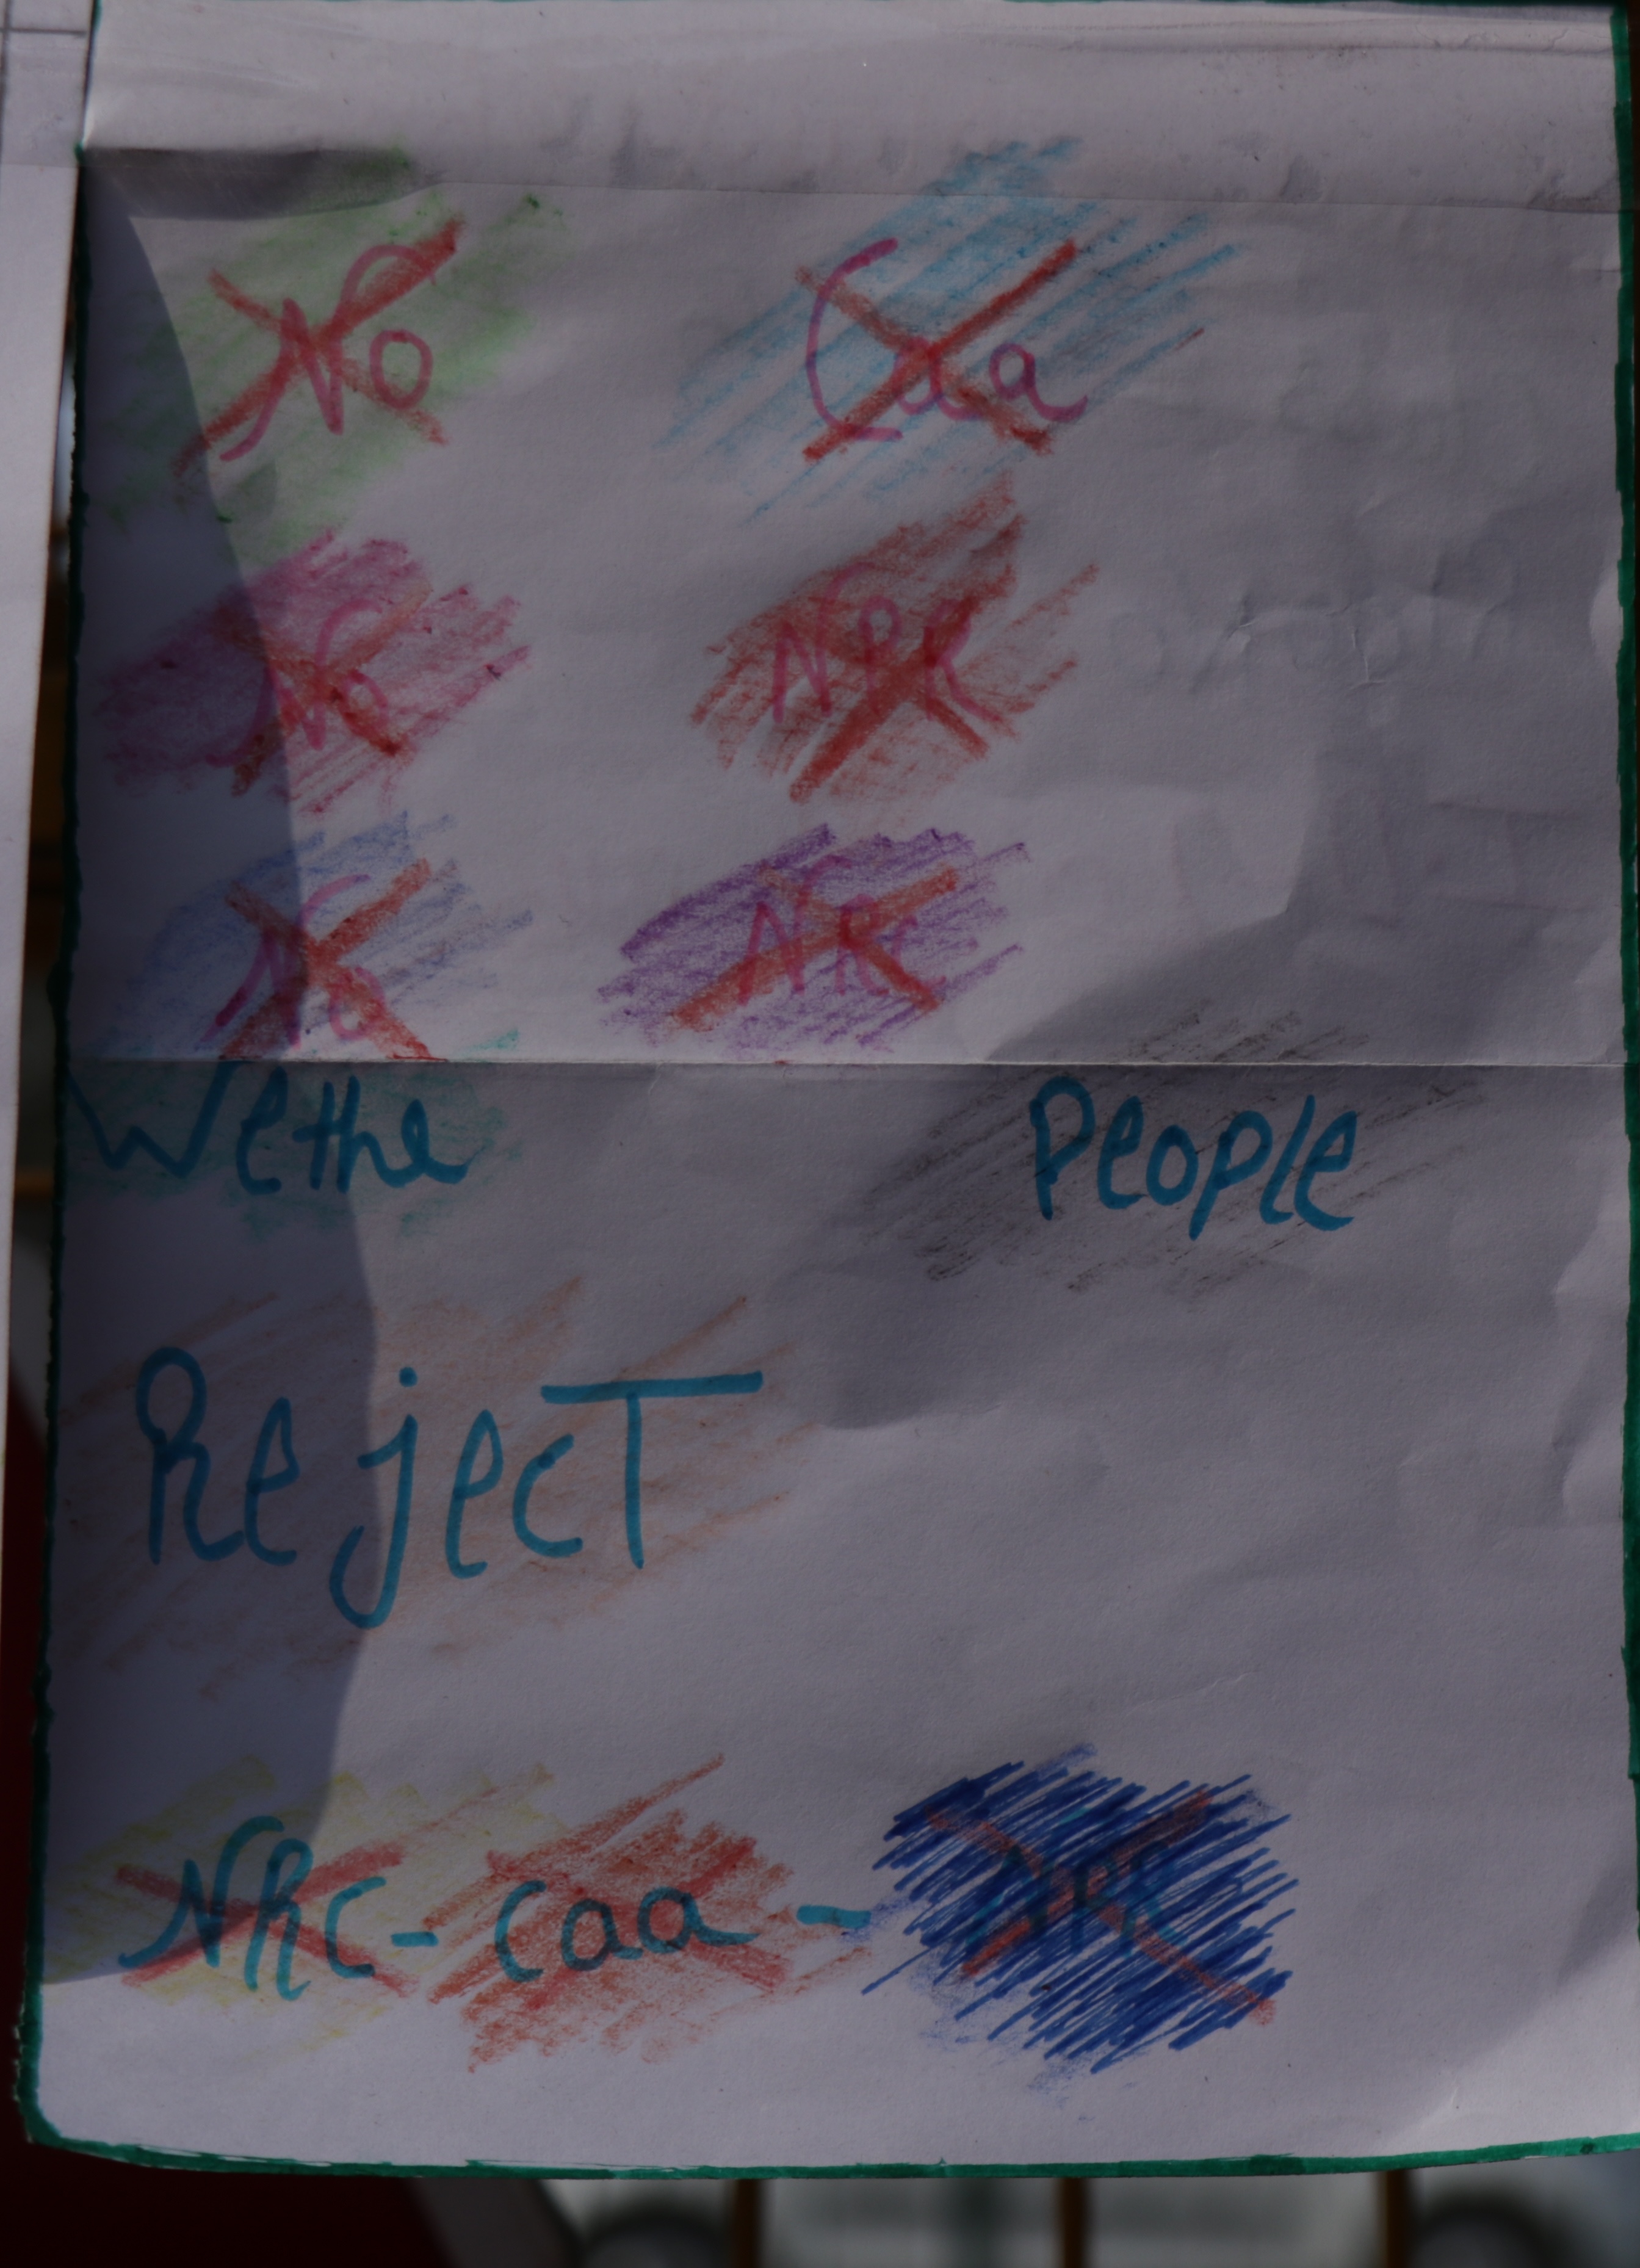 No Caa
No NPR
No NRC
We the People
Reject
NRC - Caa - NPR